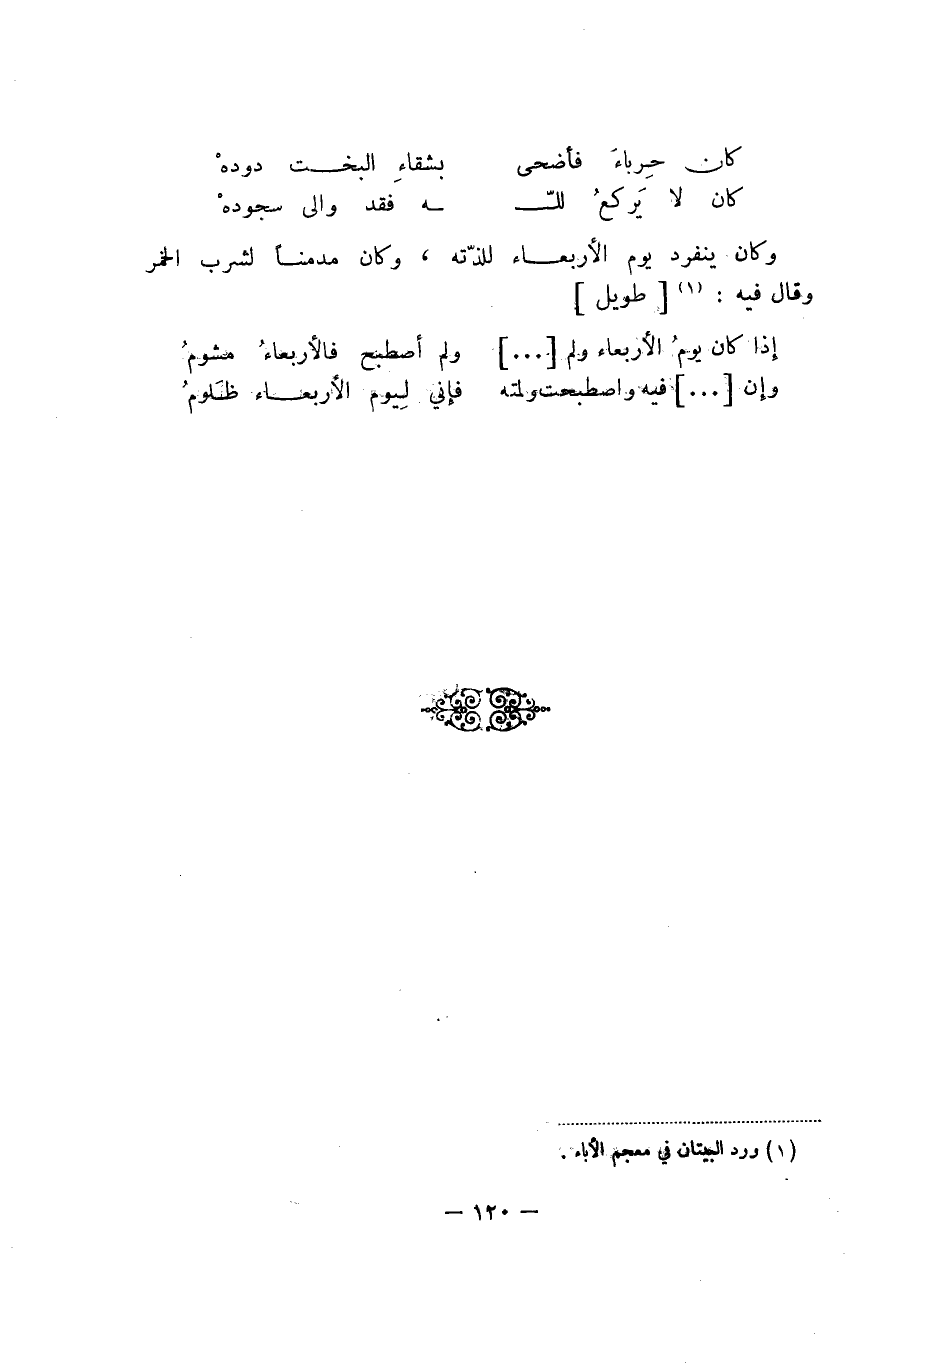 كان حِرباءَ فأضحى بشقاءِ البخت دودهْ
كان لا يَركعُ للّـ ـه فقد والى سجودهْ
وكان ينفرد يوم الأربعاء للذّته ، وكان مدمناً لشرب الخمر
وقال فيه : (١) [ طويل ]
إذا كان يومُ الأربعاء ولم [...] ولم أصطبح فالأربعاءُ مشومُ
وإن [...] فيه واصطبحت ولمته فإني لِيوم الأربعاء ظَلومُ
(١) ورد البيتان في معجم الأباء .
— ١٢٠ —